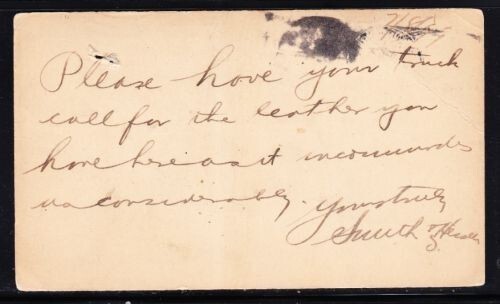 Please have your truck
call for the leather you
have here as it incommodes
us considerably.
Yours truly
Smith &